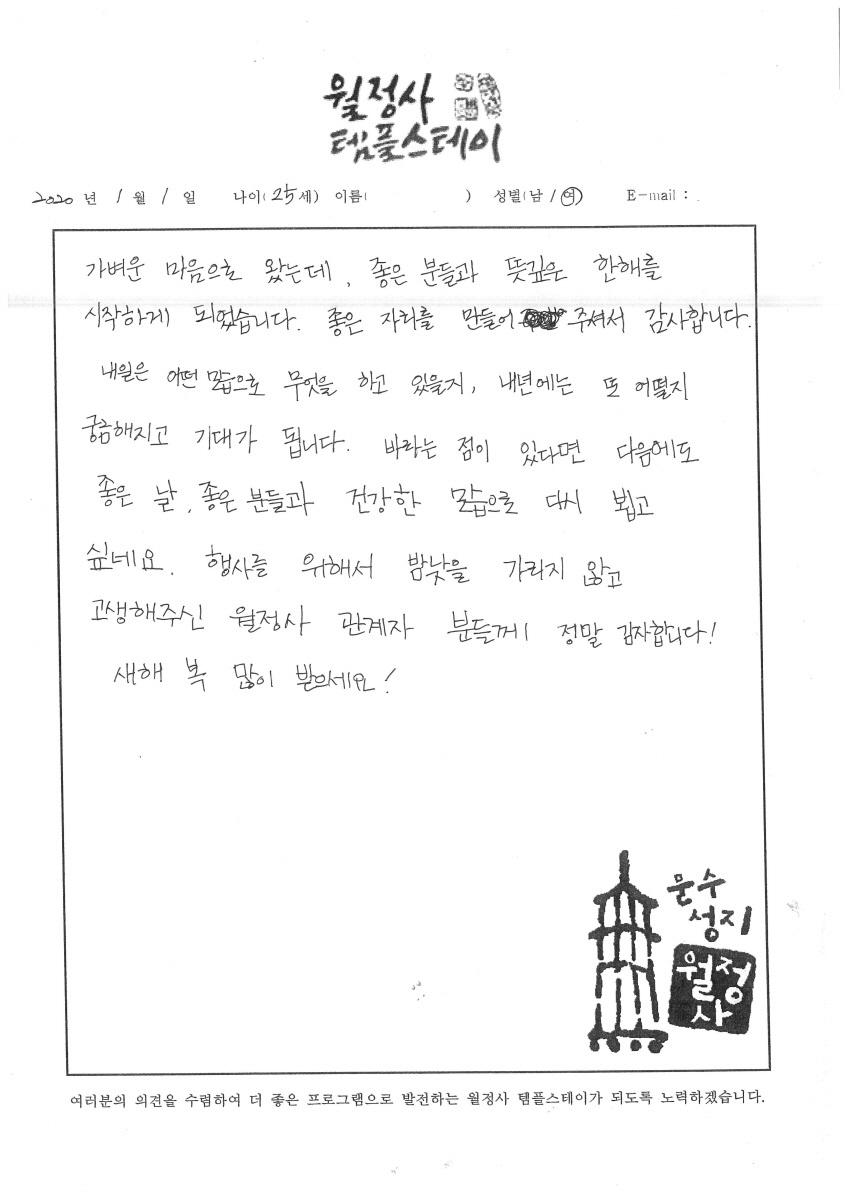 월정사
템플스테이
2020 년 1 월 1 일 나이(25세) 이름( ) 성별(남 / 여) E-mail :
가벼운 마음으로 왔는데, 좋은 분들과 뜻깊은 한해를
시작하게 되었습니다. 좋은 자리를 만들어 주셔서 감사합니다.
내일은 어떤 모습으로 무엇을 하고 있을지, 내년에는 또 어떨지
궁금해지고 기대가 됩니다. 바라는 점이 있다면 다음에도
좋은 날, 좋은 분들과 건강한 모습으로 다시 뵙고
싶네요. 행사를 위해서 밤낮을 가리지 않고
고생해주신 월정사 관계자 분들께 정말 감사합니다!
새해 복 많이 받으세요!
문수
성지
월정
사
여러분의 의견을 수렴하여 더 좋은 프로그램으로 발전하는 월정사 템플스테이가 되도록 노력하겠습니다.